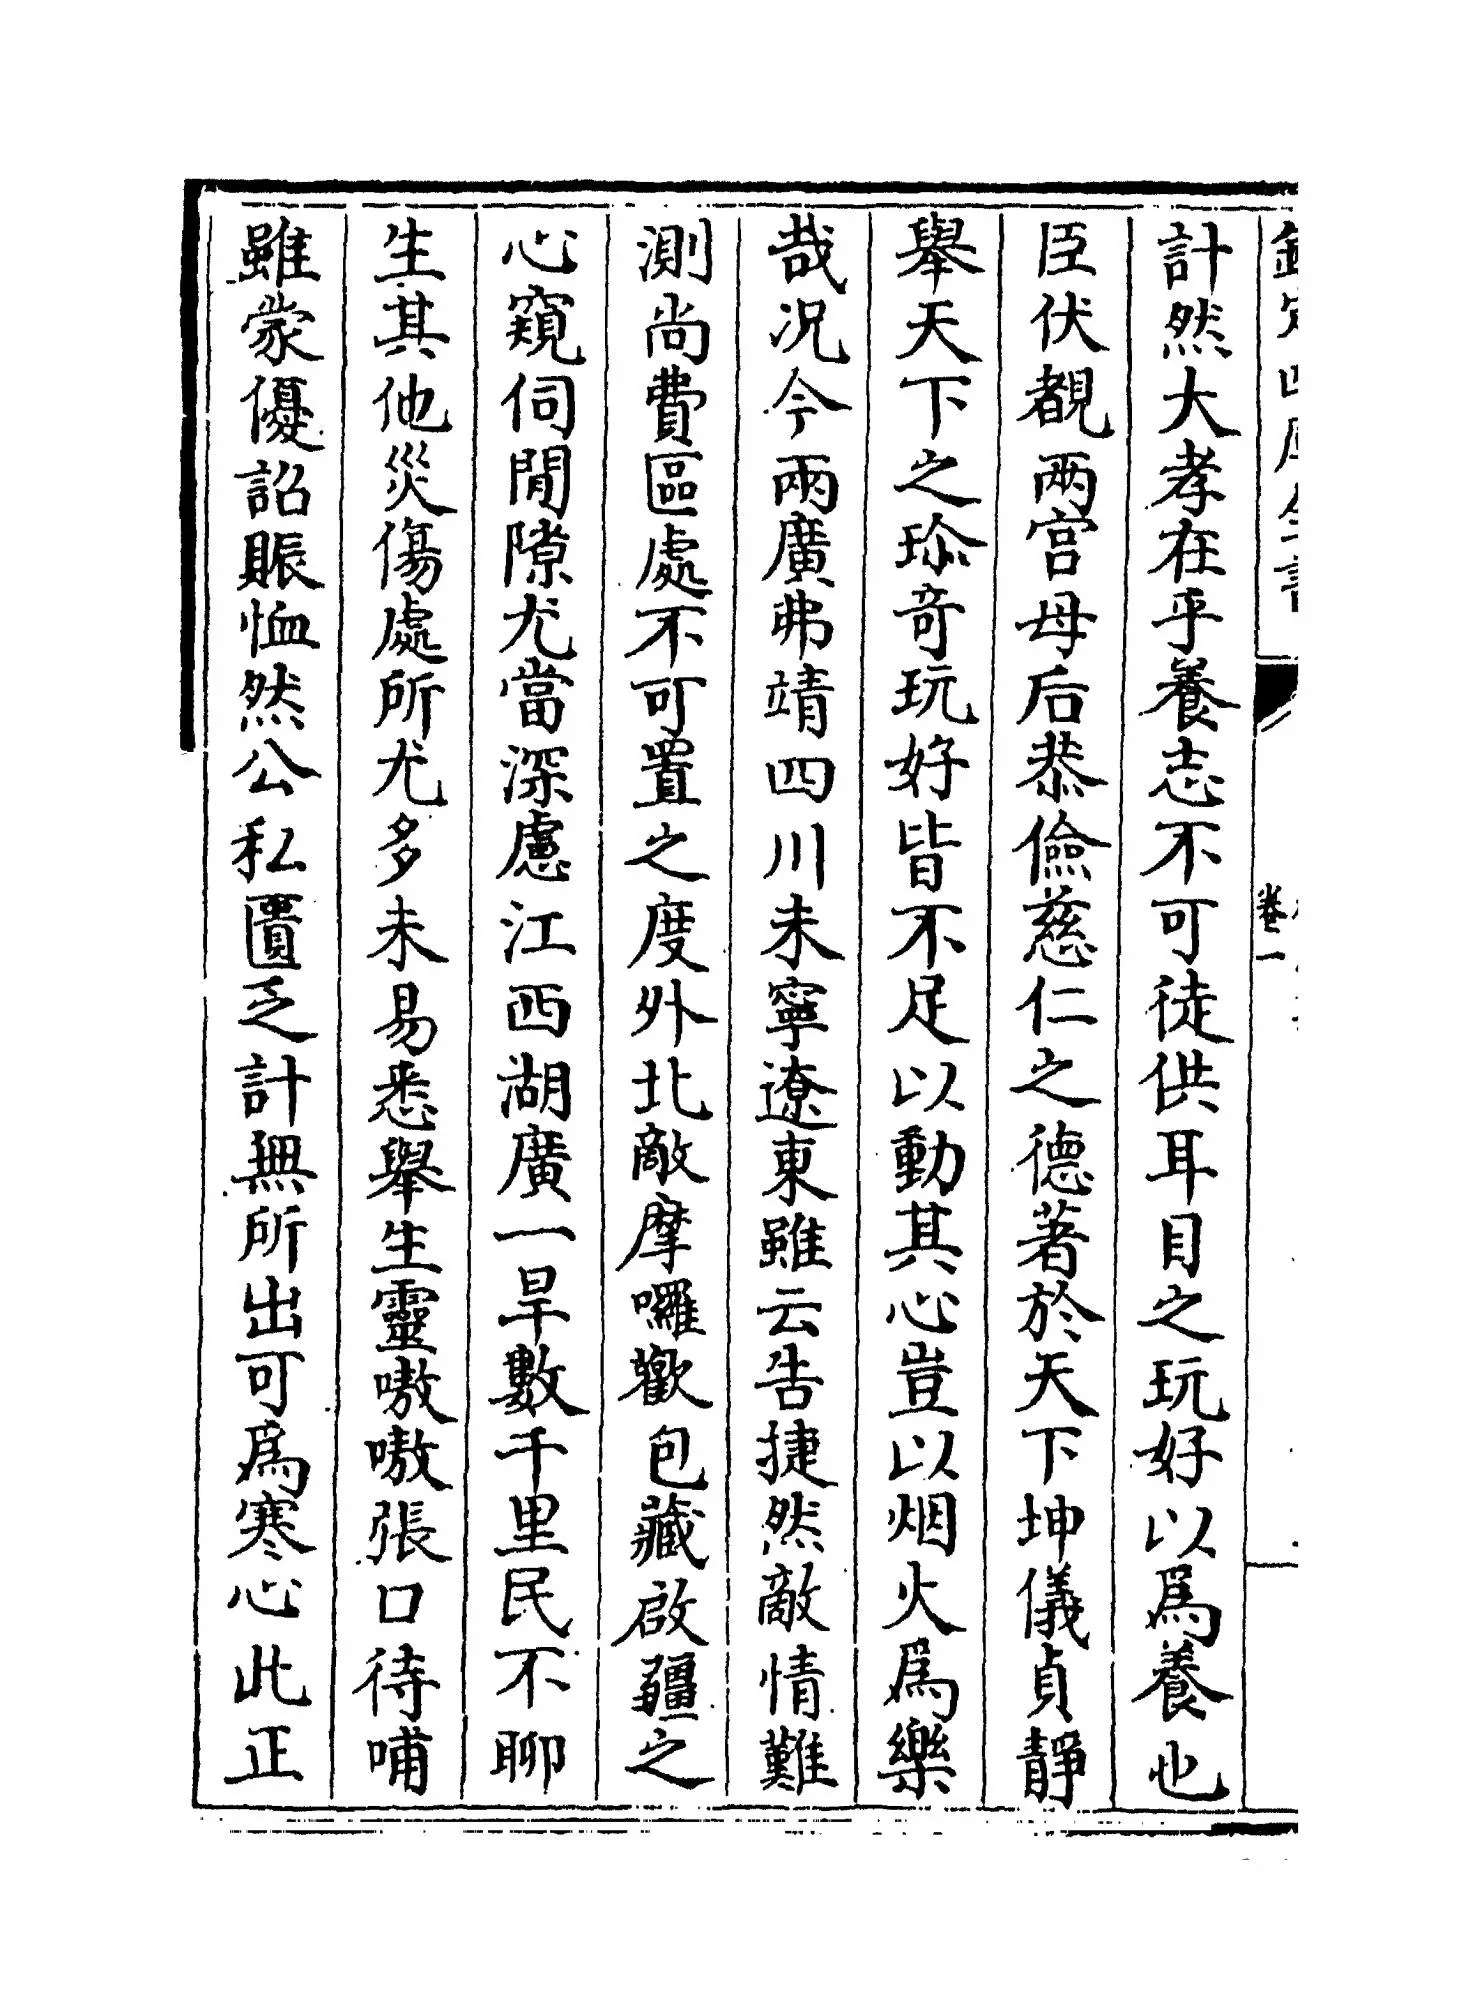 欽定四庫全書
卷一
計然大孝在乎養志不可徒供耳目之玩好以爲養也
臣伏覩兩宫母后恭儉慈仁之德著於天下坤儀貞靜
舉天下之珍奇玩好皆不足以動其心豈以烟火爲樂
哉况今兩廣弗靖四川未寧遼東雖云告捷然敵情難
測尚費區處不可置之度外北敵摩囉歡包藏啟疆之
心窺伺閒隙尤當深慮江西湖廣一旱數千里民不聊
生其他災傷處所尤多未易悉舉生靈嗷嗷張口待哺
雖蒙優詔賑恤然公私匱乏計無所出可爲寒心此正